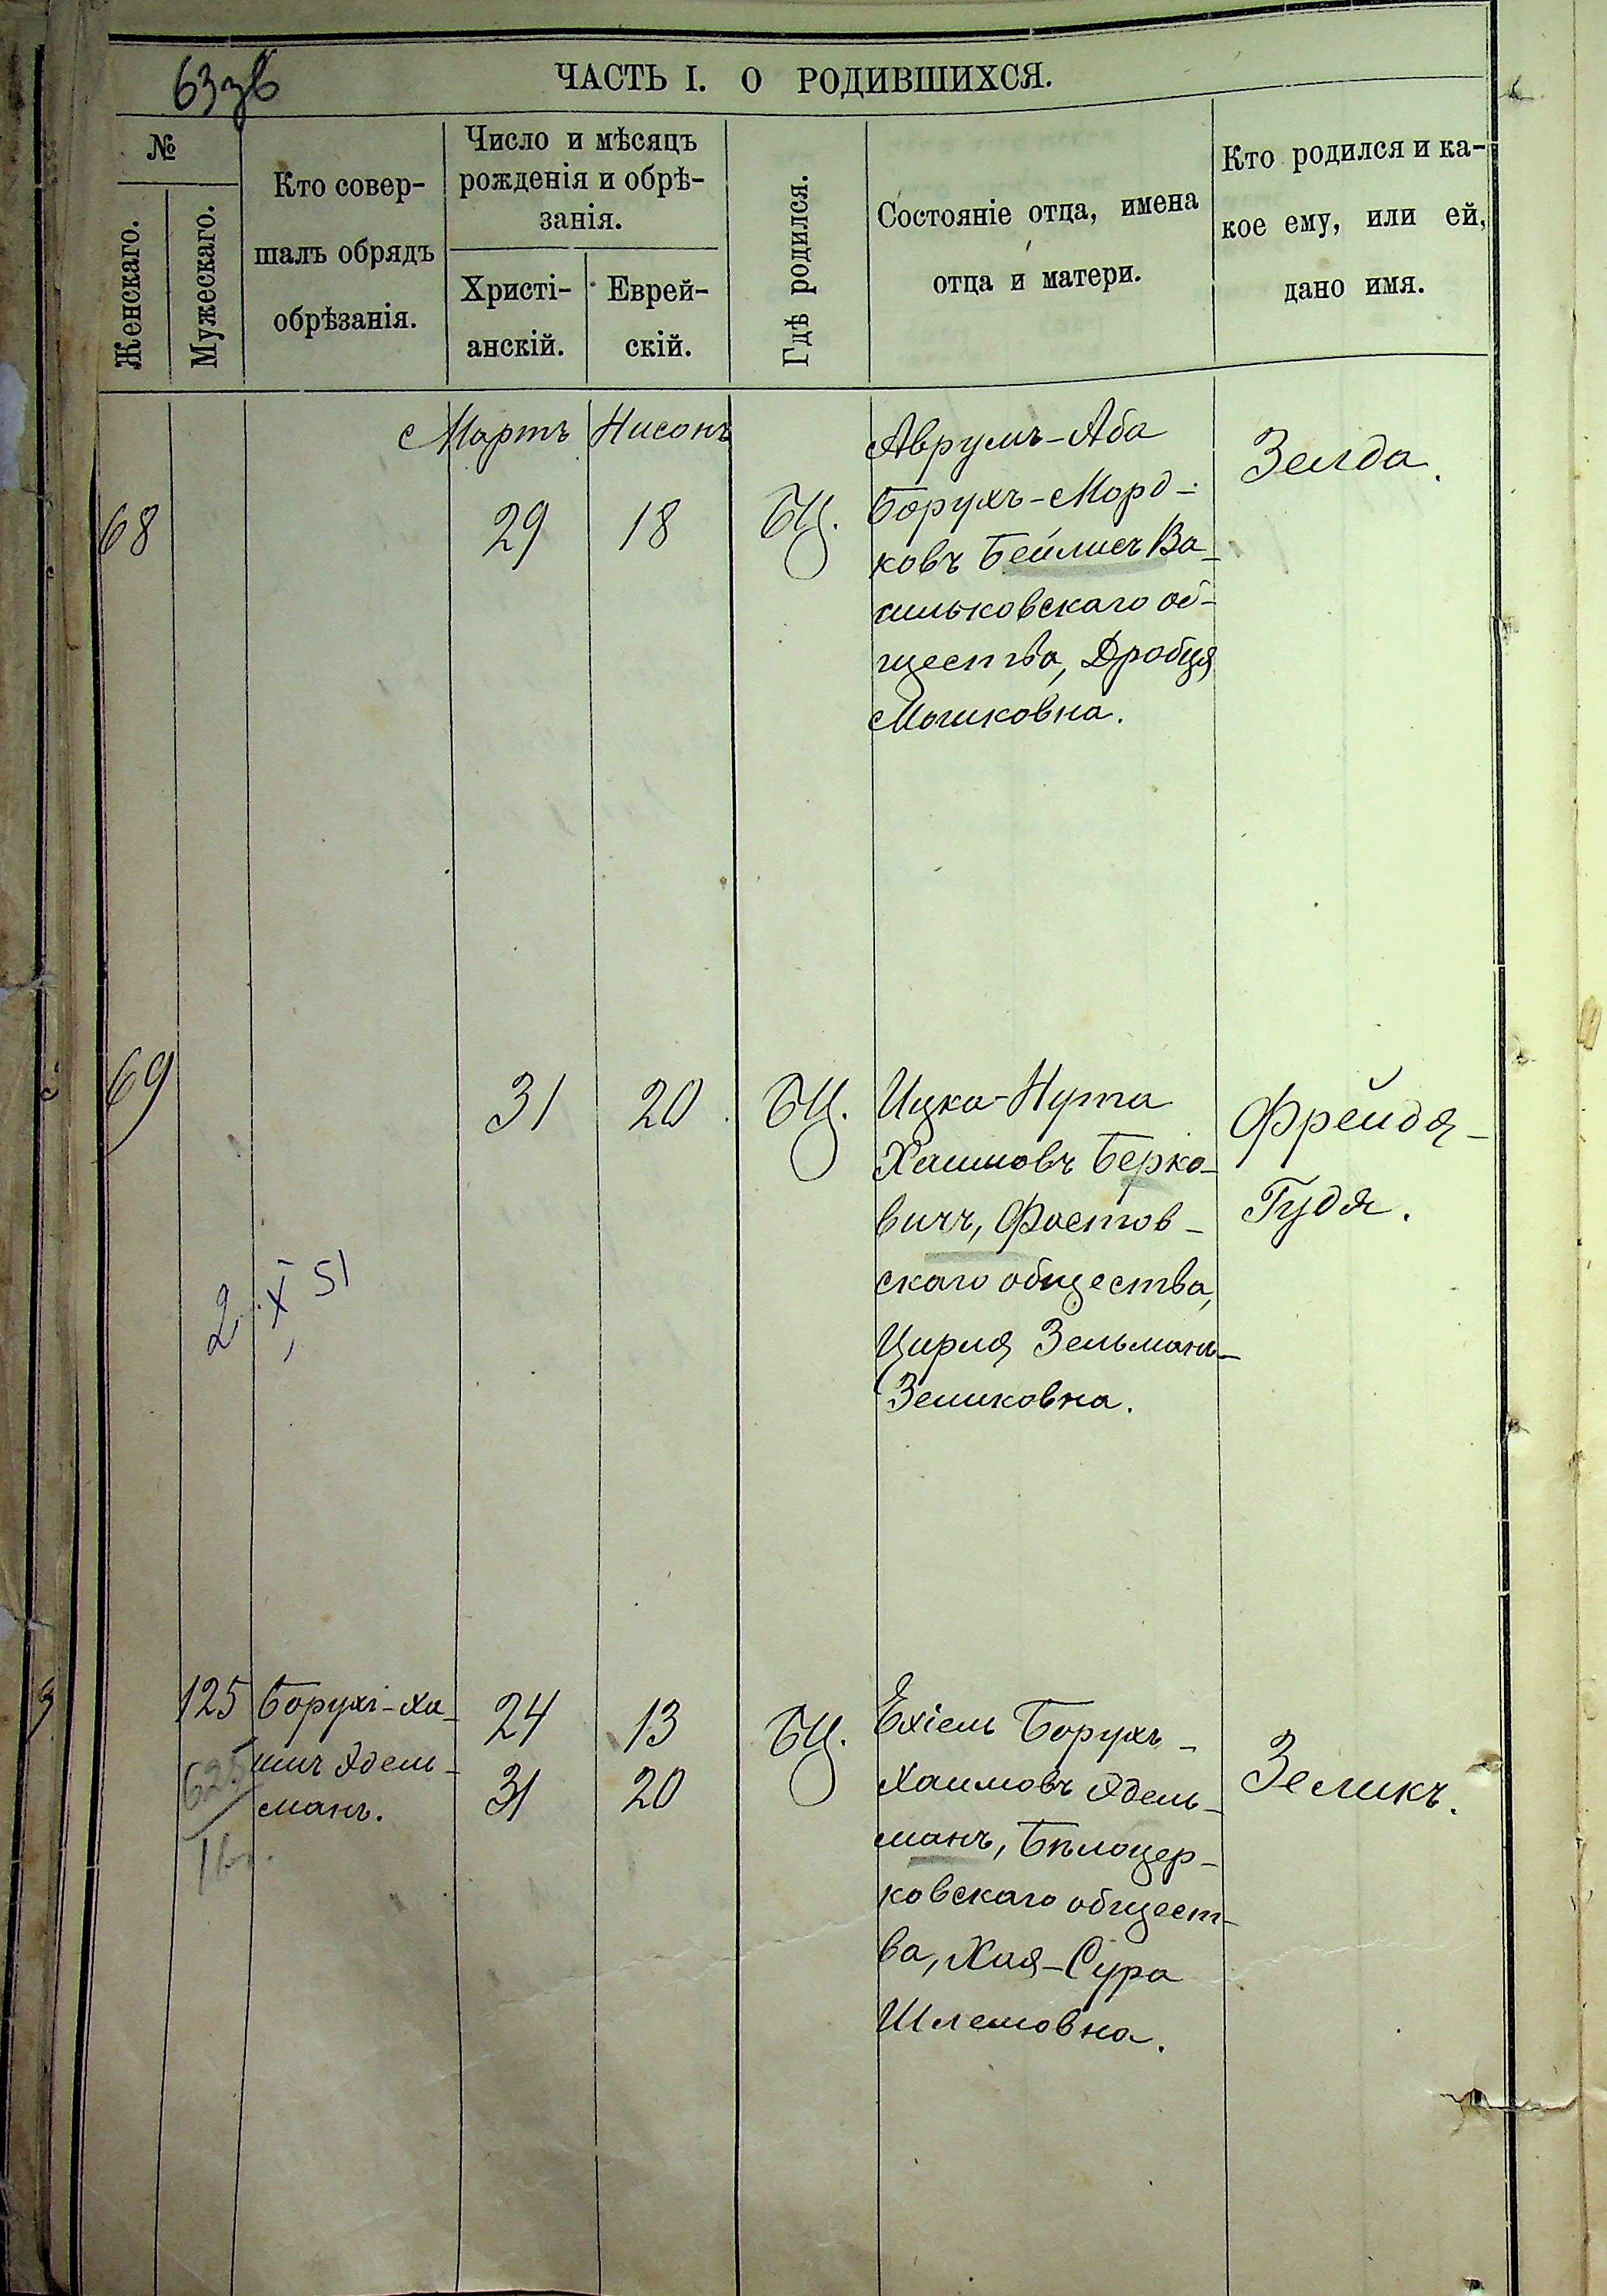 63зв
ЧАСТЬ I. О РОДИВШИХСЯ.
№
Женскаго.
Мужескаго.
Кто совер-
шалъ обрядъ
обрѣзанія.
Число и мѣсяцъ
рожденія и обрѣ-
занія.
Христі-
анскій.
Еврей-
скій.
Гдѣ родился.
Состояніе отца, имена
отца и матери.
Кто родился и ка-
кое ему, или ей,
дано имя.
Мартъ Нисонъ
68
29
18
БЦ.
Аврумъ-Аба
Борухъ-Морд-
ковъ Бейлисъ Ва-
сильковскаго об-
щества, Дробця
Мошковна.
Зелда.
69
31
20
БЦ.
Ицко-Нута
Хаимовъ Берко-
вичъ, Фастов-
скаго общества,
Цирля Зельманъ-
Зеликовна.
Фрейдя-
Гудя.
2 X 51
125
Борухъ-Ха-
имъ Эдель-
манъ.
24
31
13
20
БЦ.
Ехіель Борухъ-
Хаимовъ Эдель-
манъ, Бѣлоцер-
ковскаго общест-
ва, Хая-Сура
Шлемовна.
Зеликъ.